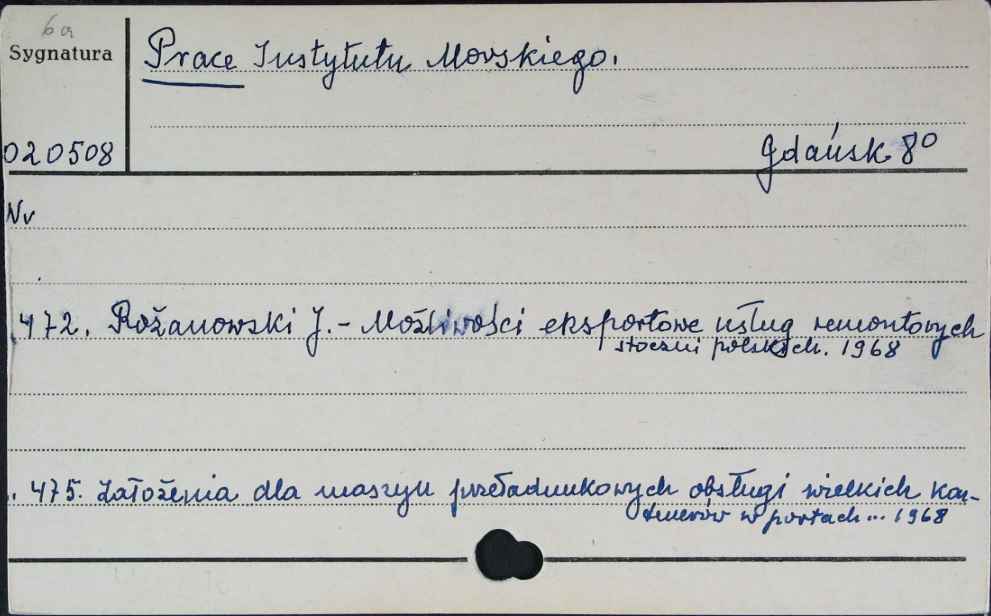 6a
Sygnatura
Prace Instytutu Morskiego.
020508
Gdańsk 8°
Nr
472. Rożanowski J. - Możliwości eksportowe usług remontowych
stoczni polskich. 1968
475. Założenia dla maszyn przeładunkowych obsługi wielkich kon-
tenerów w portach... 1968